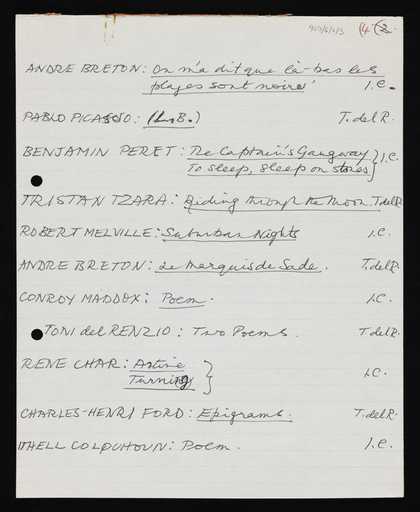 (4 (2
ANDRE BRETON: On m'a dit que là-bas les
plages sont noires' I.C.
PABLO PICASSO: (L.B.) T.delR.
BENJAMIN PERET: The Captain's Gangway } I.C.
To sleep, sleep on stones
TRISTAN TZARA: Riding through the Moon. T.delR.
ROBERT MELVILLE: Suburban Nights I.C.
ANDRE BRETON: Le Marquis de Sade. T.delR.
CONROY MADDOX: Poem. I.C.
TONI del RENZIO: Two Poems. T.delR.
RENE CHAR: Artine } I.C.
Turning
CHARLES-HENRI FORD: Epigrams. T.delR.
ITHELL COLQUHOUN: Poem. I.C.